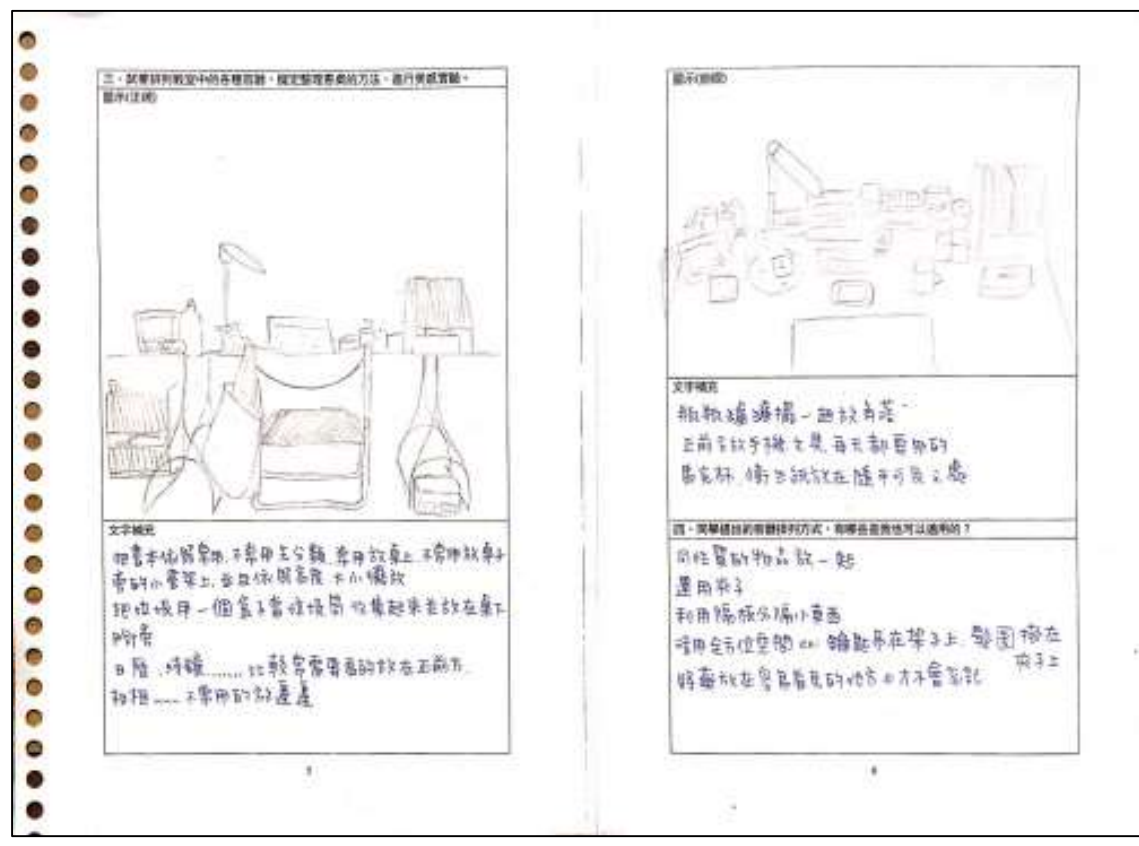 三、試著排列教室中的各種容器,擬定整理書桌的方法,進行美感實驗。
圖示(正視)
文字補充
把書本依照常用、不常用先分類,常用放桌上,不常用放桌子
旁的小書架上,並且依照高度大小擺放
把垃圾用一個盒子當垃圾筒收集起來先放在桌下
的旁
日曆、時鐘……比較常需要看的放在正前方
相框……不常用的放邊邊
5
圖示(俯視)
文字補充
瓶瓶罐罐擺一起放角落
正前方放手機文具每天都要用的
馬克杯、衛生紙放在隨手可及之處
四、同學提出的容器排列方式,有哪些是我也可以適用的?
同性質的物品放一起
運用夾子
利用隔板分隔小東西
活用全方位空間 ex: 鑰匙吊在架子上、髮圈掛在
夾子上
將藥放在容易看見的地方,才不會忘記
6